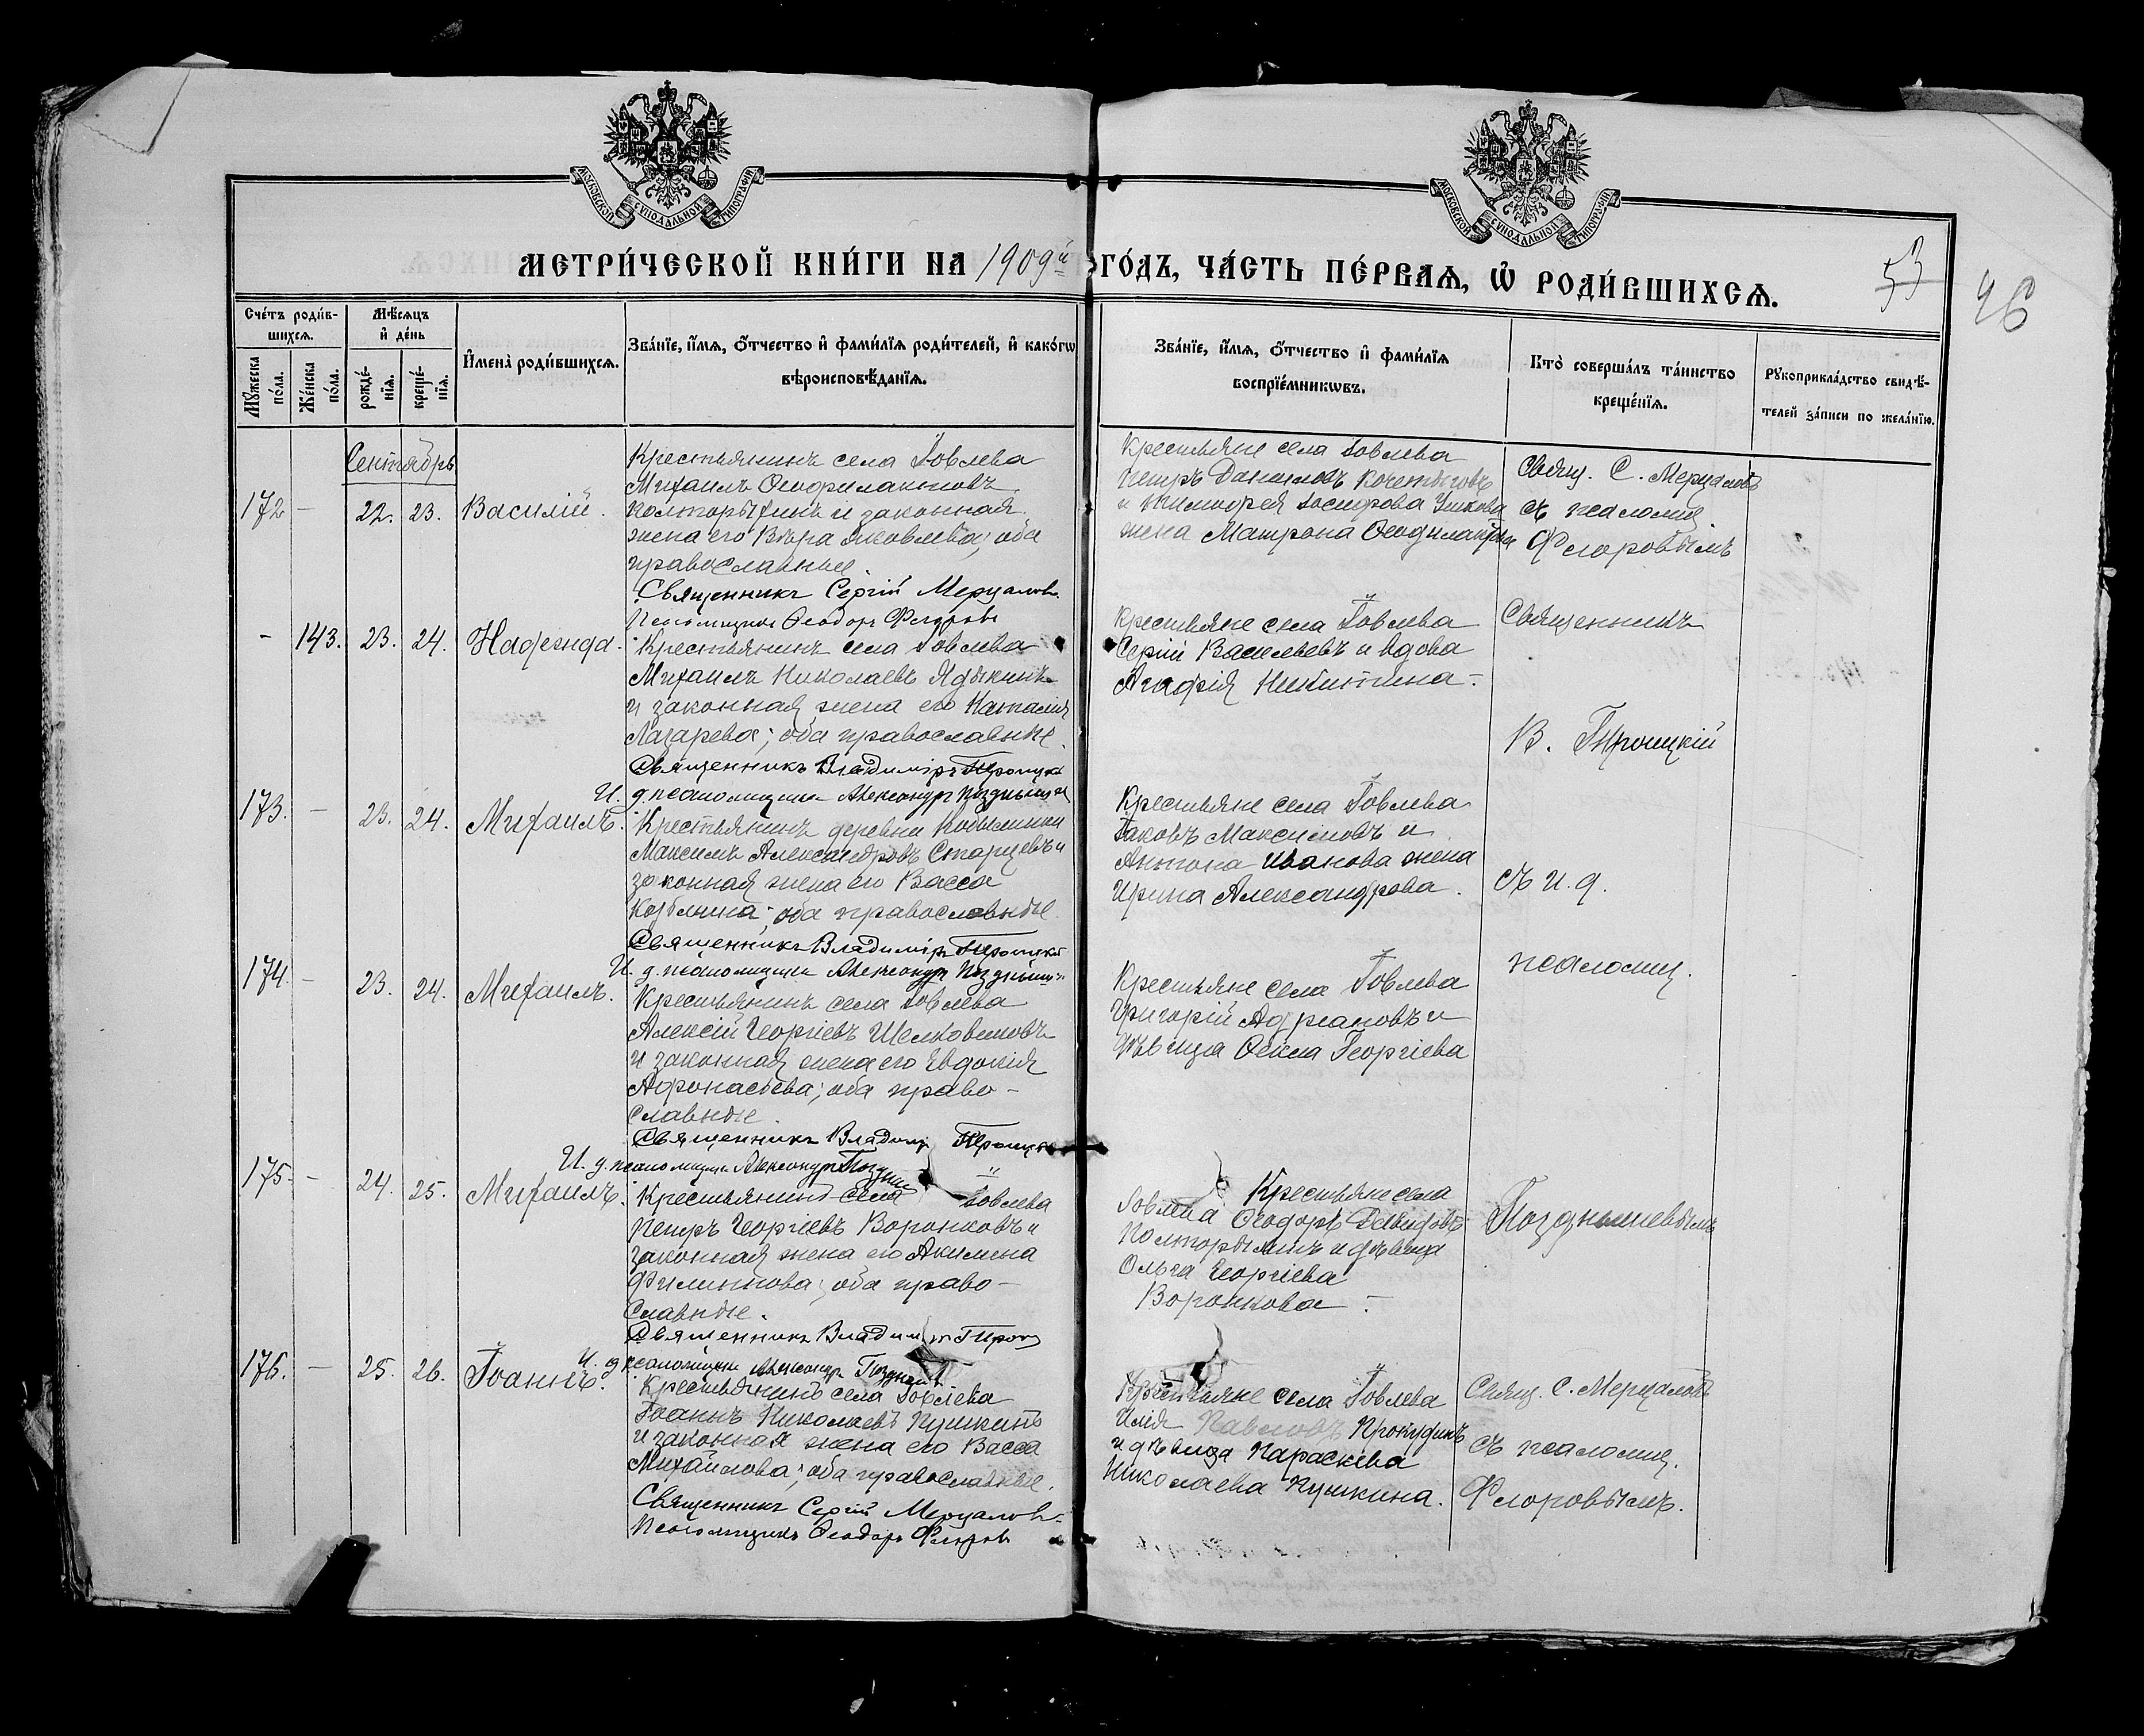 МОСКОВСКОЙ СѴНОДАЛЬНОЙ ТИПОГРАФІИ
МОСКОВСКОЙ СѴНОДАЛЬНОЙ ТИПОГРАФІИ
МЕТРИ́ЧЕСКОЙ КНИ́ГИ НА 1909й ГО́ДЪ, ЧА́СТЬ ПЕ́РВАЯ, Ѽ РОДИ́ВШИХСЯ.
53
46
Сче́тъ роди́в-
шихся.
Мꙋ́жеска по́ла.
Же́нска по́ла.
Мѣ́сяцъ
и҆ де́нь
рожде́-
нїѧ.
креще́-
нїѧ.
И҆мена̀ роди́вшихся.
Зва́нїе, и҆́мя, о҆́тчество и҆ фами́лїя роди́телей, и҆ како́гѡ
вѣроисповѣ́данїя.
Зва́нїе, и҆́мя, о҆́тчество и҆ фами́лїя
воспрїе́мникѡвъ.
Кто̀ соверша́лъ та́инство
креще́нїя.
Рꙋкоприкла́дство свидѣ́-
телей за́писи по жела́нїю.
Сентябрь
172 – 22. 23. Василій.
Крестьянинъ села Іовлева
Михаилъ Ѳеофилактовъ
Полторыхинъ и законная
жена его Вѣра Яковлева; оба
православные.
Священникъ Сергій Мерцаловъ.
Псаломщикъ Ѳеодоръ Флоровъ
Крестьяне села Іовлева
Петръ Даниловъ Кочетыговъ
и Тимофея Іосифова Ушкова
жена Матрона Ѳеофилактова
Свящ. С. Мерцаловъ
съ псаломщ.
Флоровымъ
– 143. 23. 24. Надежда.
Крестьянинъ села Іовлева
Михаилъ Николаевъ Ядыкинъ
и законная жена его Наталія
Лазарева; оба православные.
Священникъ Владиміръ Троицкій
И. д. псаломщика Александръ Позднышевъ
Крестьяне села Іовлева
Сергій Васильевъ и вдова
Агафія Никитина.
Священникъ
В. Троицкій
173. – 23. 24. Михаилъ.
Крестьянинъ деревни Кобылинки
Максимъ Александровъ Старцевъ и
законная жена его Васса
Козьмина; оба православные.
Священникъ Владиміръ Троицкій
И. д. псаломщика Александръ Позднышевъ
Крестьяне села Іовлева
Іаковъ Максимовъ и
Антона Иванова жена
Ирина Александрова.
съ и. д.
174. – 23. 24. Михаилъ.
Крестьянинъ села Іовлева
Алексій Георгіевъ Шелковниковъ
и законная жена его Евдокія
Афонасьева; оба право-
славные.
Священникъ Владимір Троицкій
И. д. псаломщика Александръ Поздн
Крестьяне села Іовлева
Григорій Адріановъ и
дѣвица Ѳекла Георгіева
псаломщ.
175. – 24. 25. Михаилъ.
Крестьянинъ села Іовлева
Петръ Георгіевъ Воронковъ и
законная жена его Акилина
Филиппова; оба право-
славные.
Священникъ Владимір Троиц
И. д. псаломщика Александръ Позднышев
Крестьяне села
Іовлева Ѳеодоръ Давидовъ
Полторыхинъ и дѣвица
Ольга Георгіева
Воронкова.
Позднышевымъ
176. – 25. 26. Іоаннъ.
Крестьянинъ села Іовлева
Іоаннъ Николаевъ Пушкинъ
и законная жена его Васса
Михайлова; оба православные.
Священникъ Сергій Мерцаловъ
Псаломщикъ Ѳеодоръ Флоровъ
Крестьяне села Іовлева
Илія Павловъ Прокудинъ
и дѣвица Параскева
Николаева Пушкина.
Свящ. С. Мерцаловъ
съ псаломщ.
Флоровымъ.